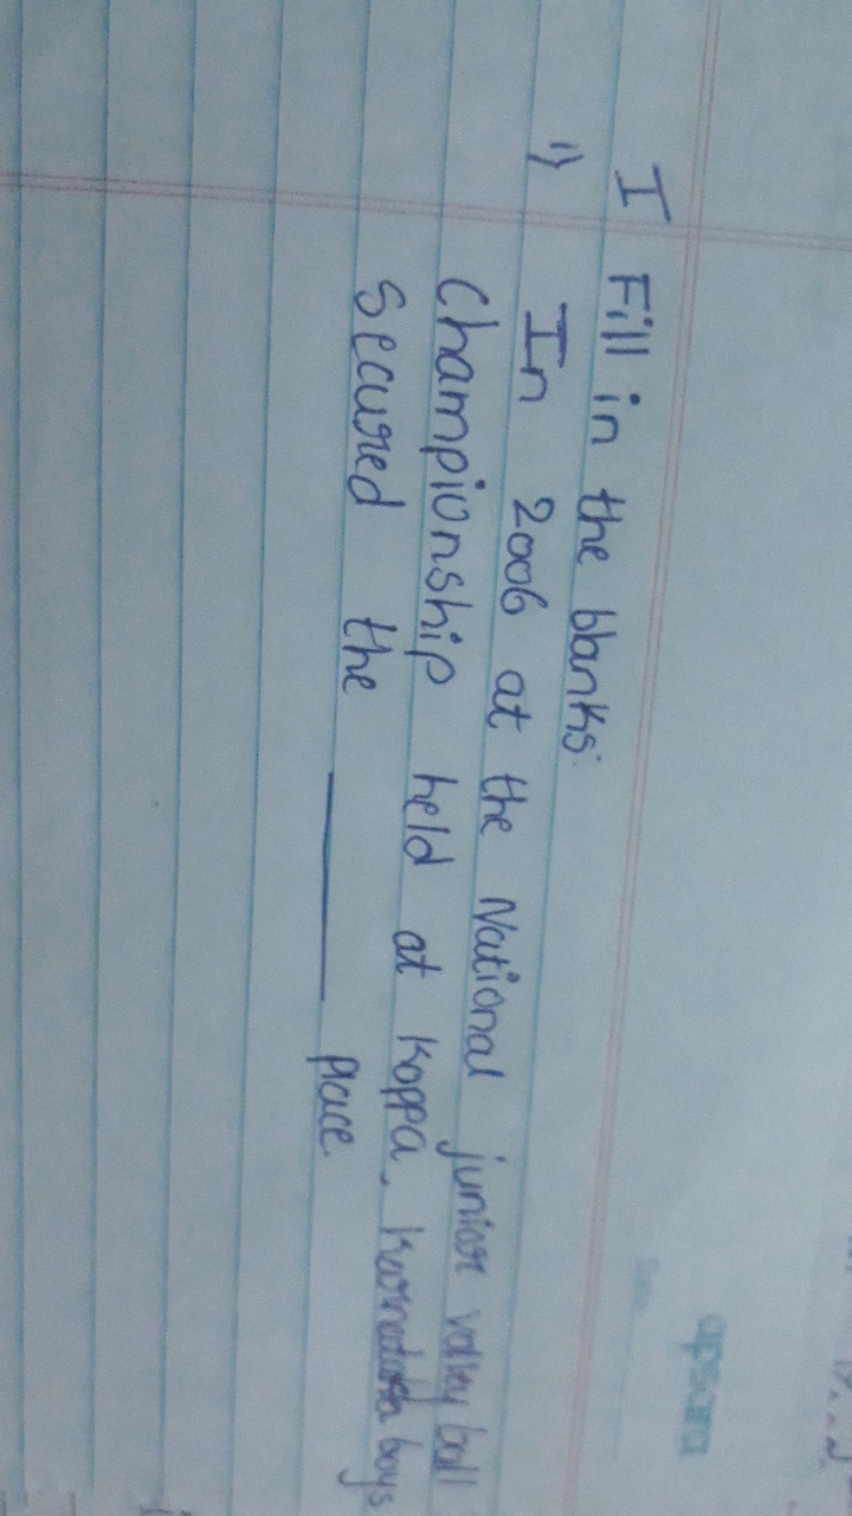 I Fill in the blanks:
1) In 2006 at the National junior volley ball
Championship held at Koppa, Karnataka boys
secured the ______ place.
apsara